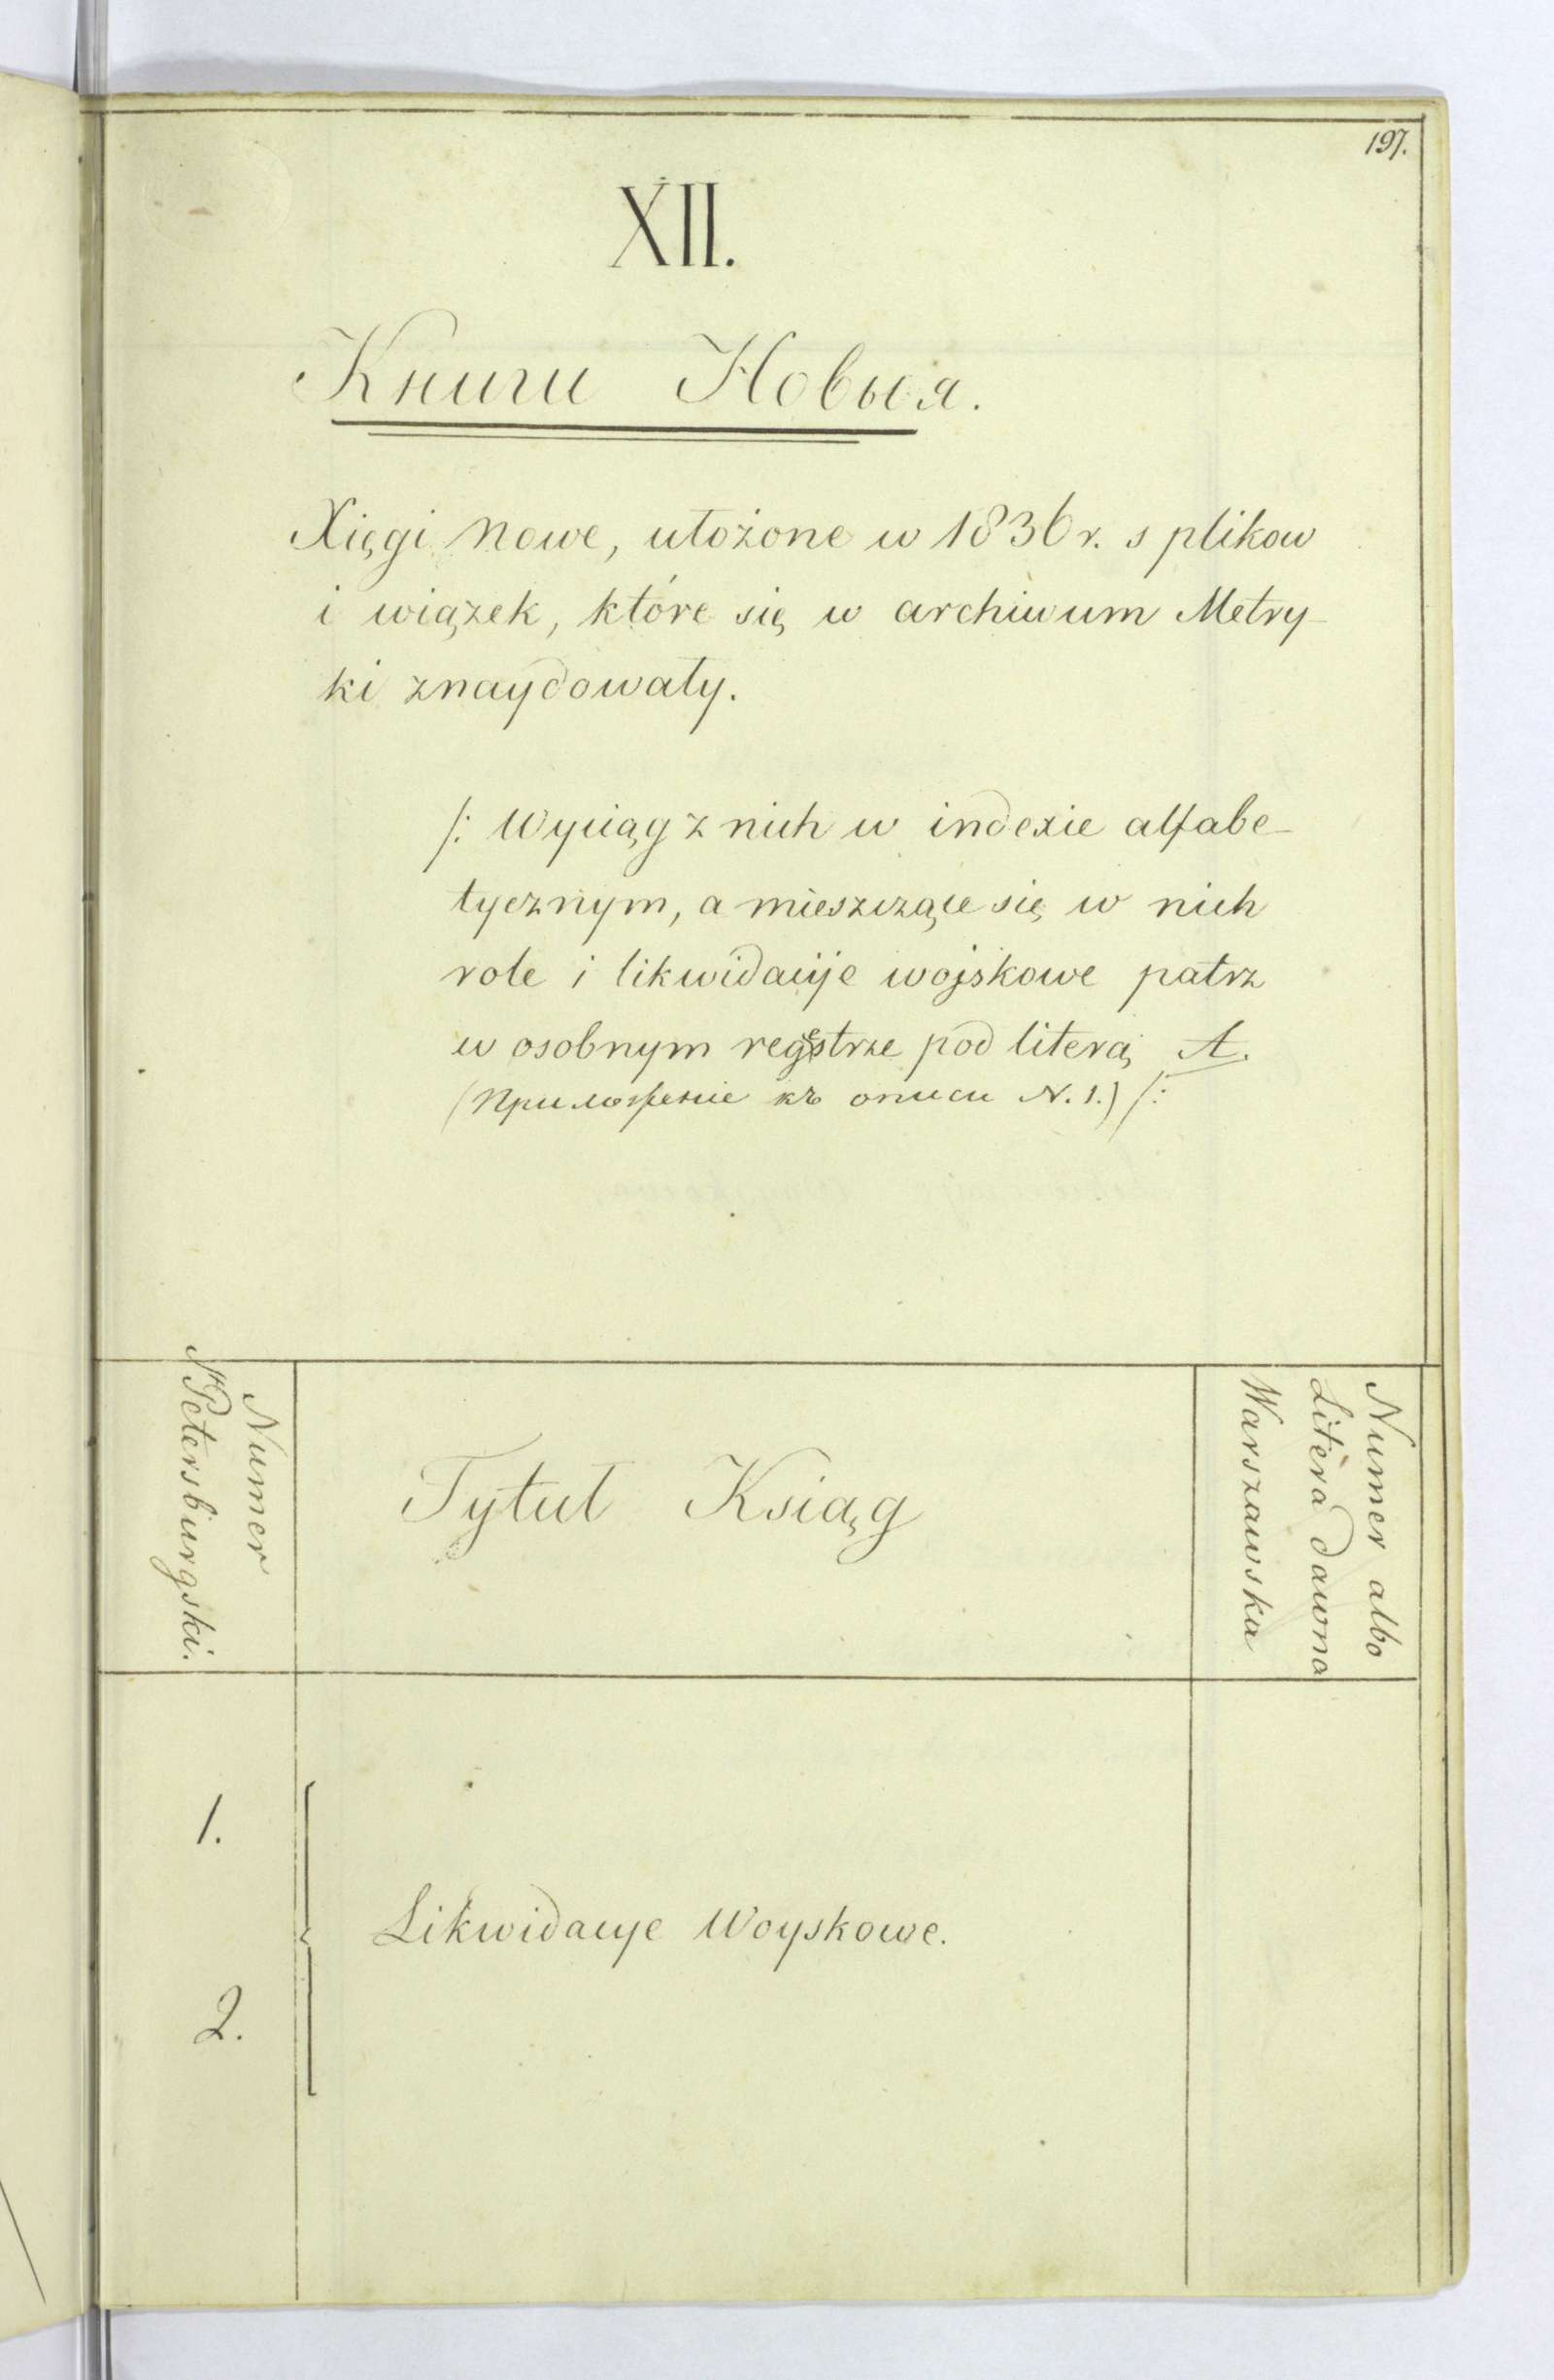 197.
XII.
Книги Новыя.
Xięgi Nowe, ułożone w 1836 r. s plikow
i wiązek, które się w archiwum Metry-
ki znaydowały.
/: Wyciąg z nich w indexie alfabe-
tycznym, a mieszczące się w nich
role i likwidacije wojskowe patrz
w osobnym regestrze pod literą A.
(Приложенiе къ описи N. 1.) /:
Numer
Petersburgski.
Tytuł Ksiąg
Numer albo
Litera dawna
Warszawska
1.
Likwidacye Woyskowe.
2.